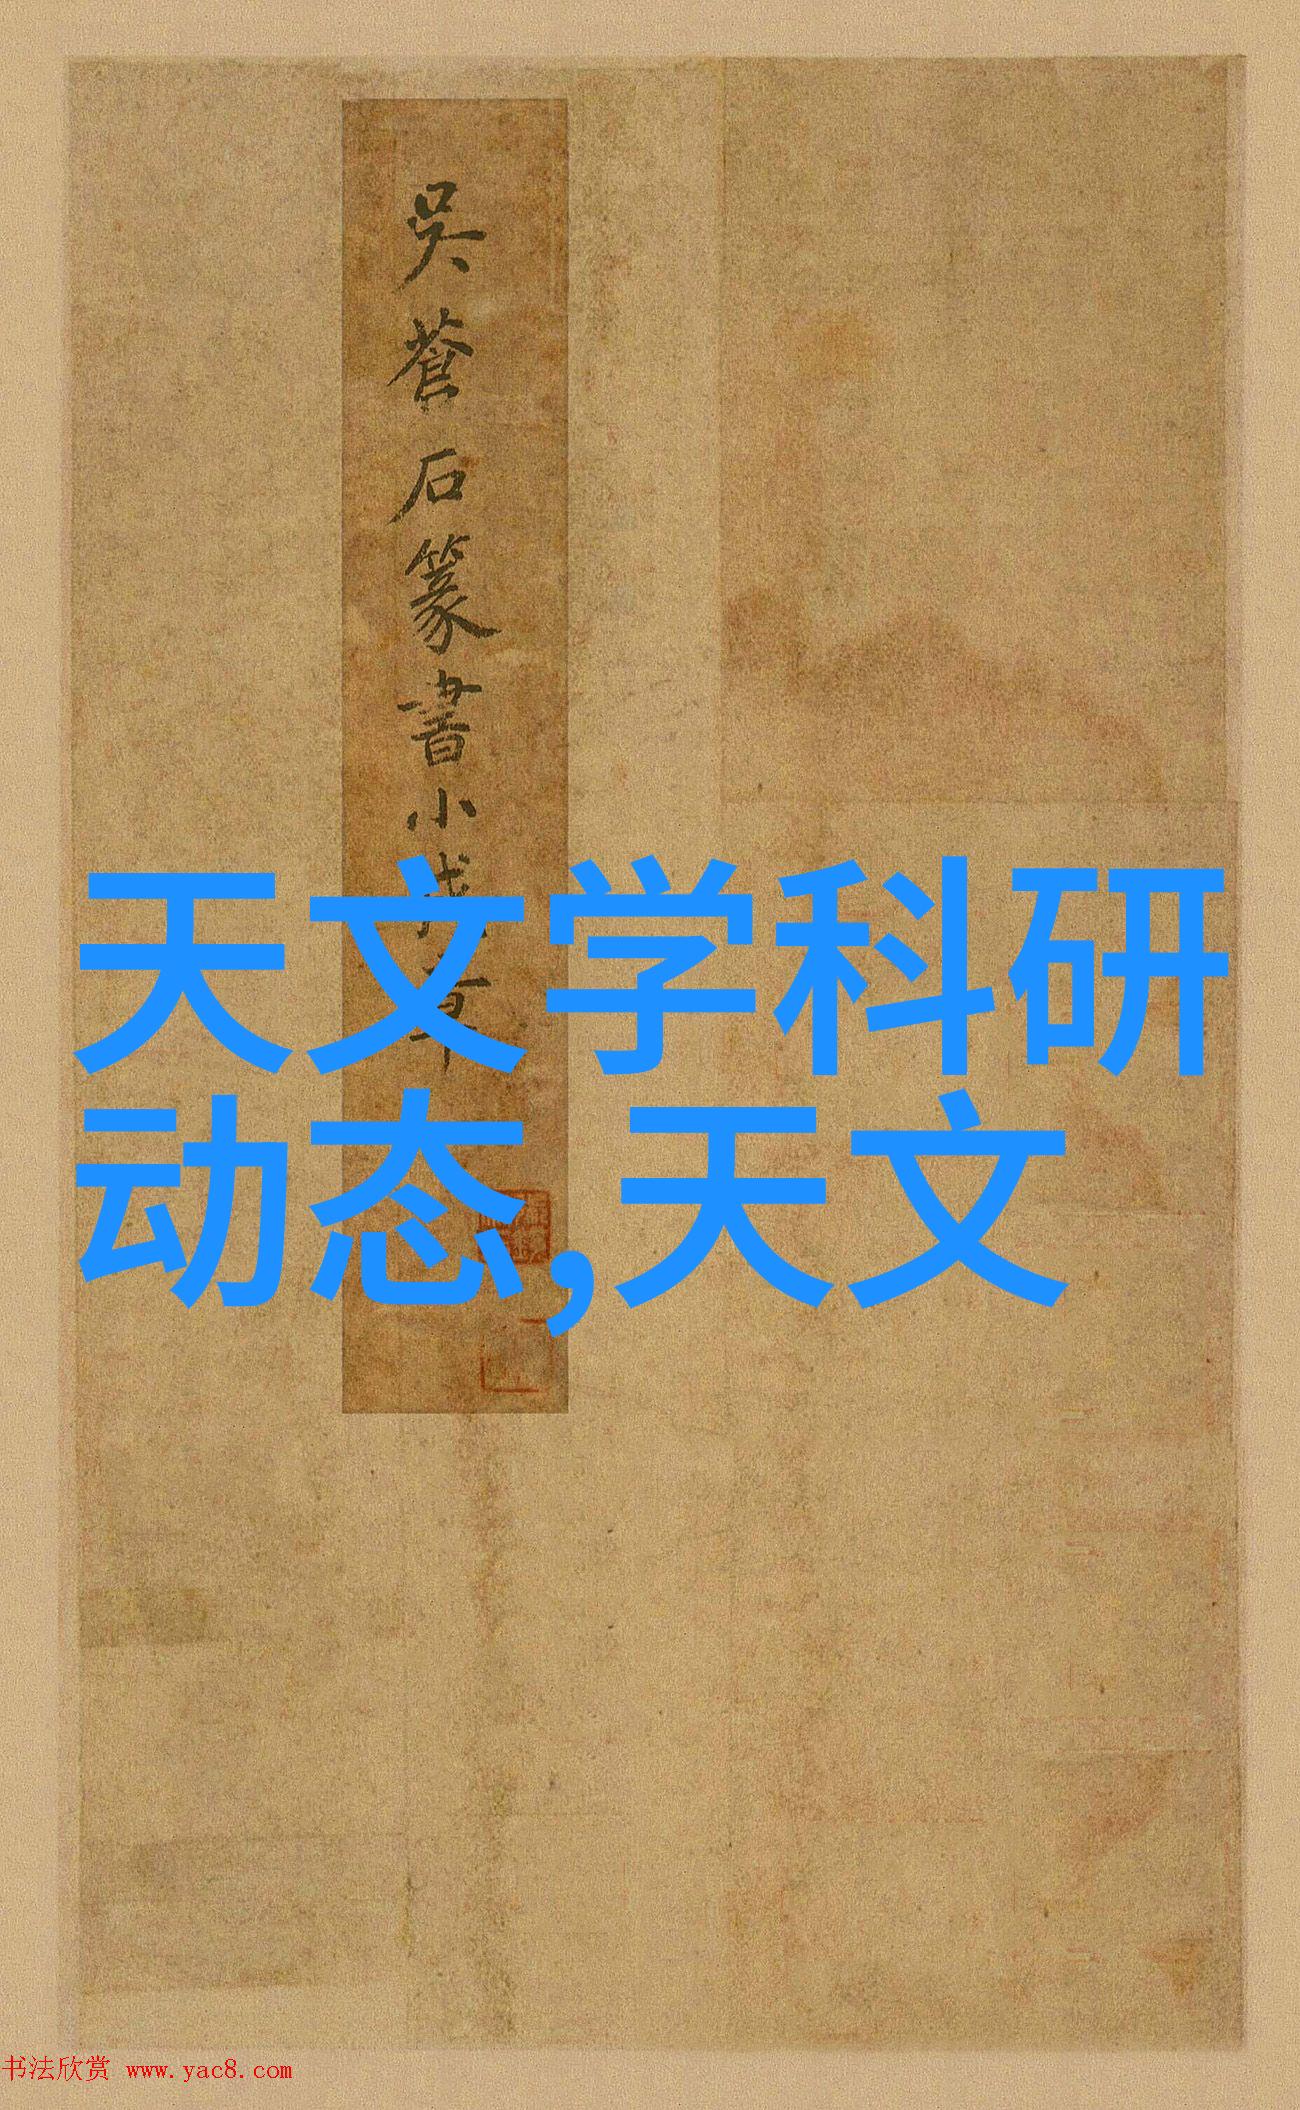 吴蒼石篆書小戎章
天文学科研
动态,天文
书法欣赏 www.yac8.com